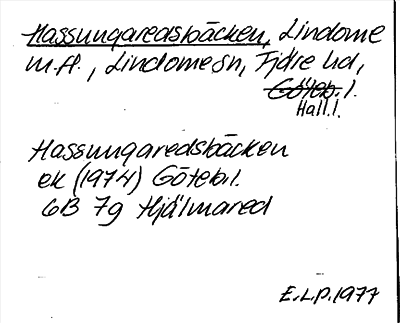 Hassungaredsbäcken, Lindome
m.fl., Lindome sn, Fjäre hd,
Göteb. l.
Hall. l.
Hassungaredsbäcken
ek (1974) Göteb. l.
6B 7g Hjälmared
E.L.P. 1977